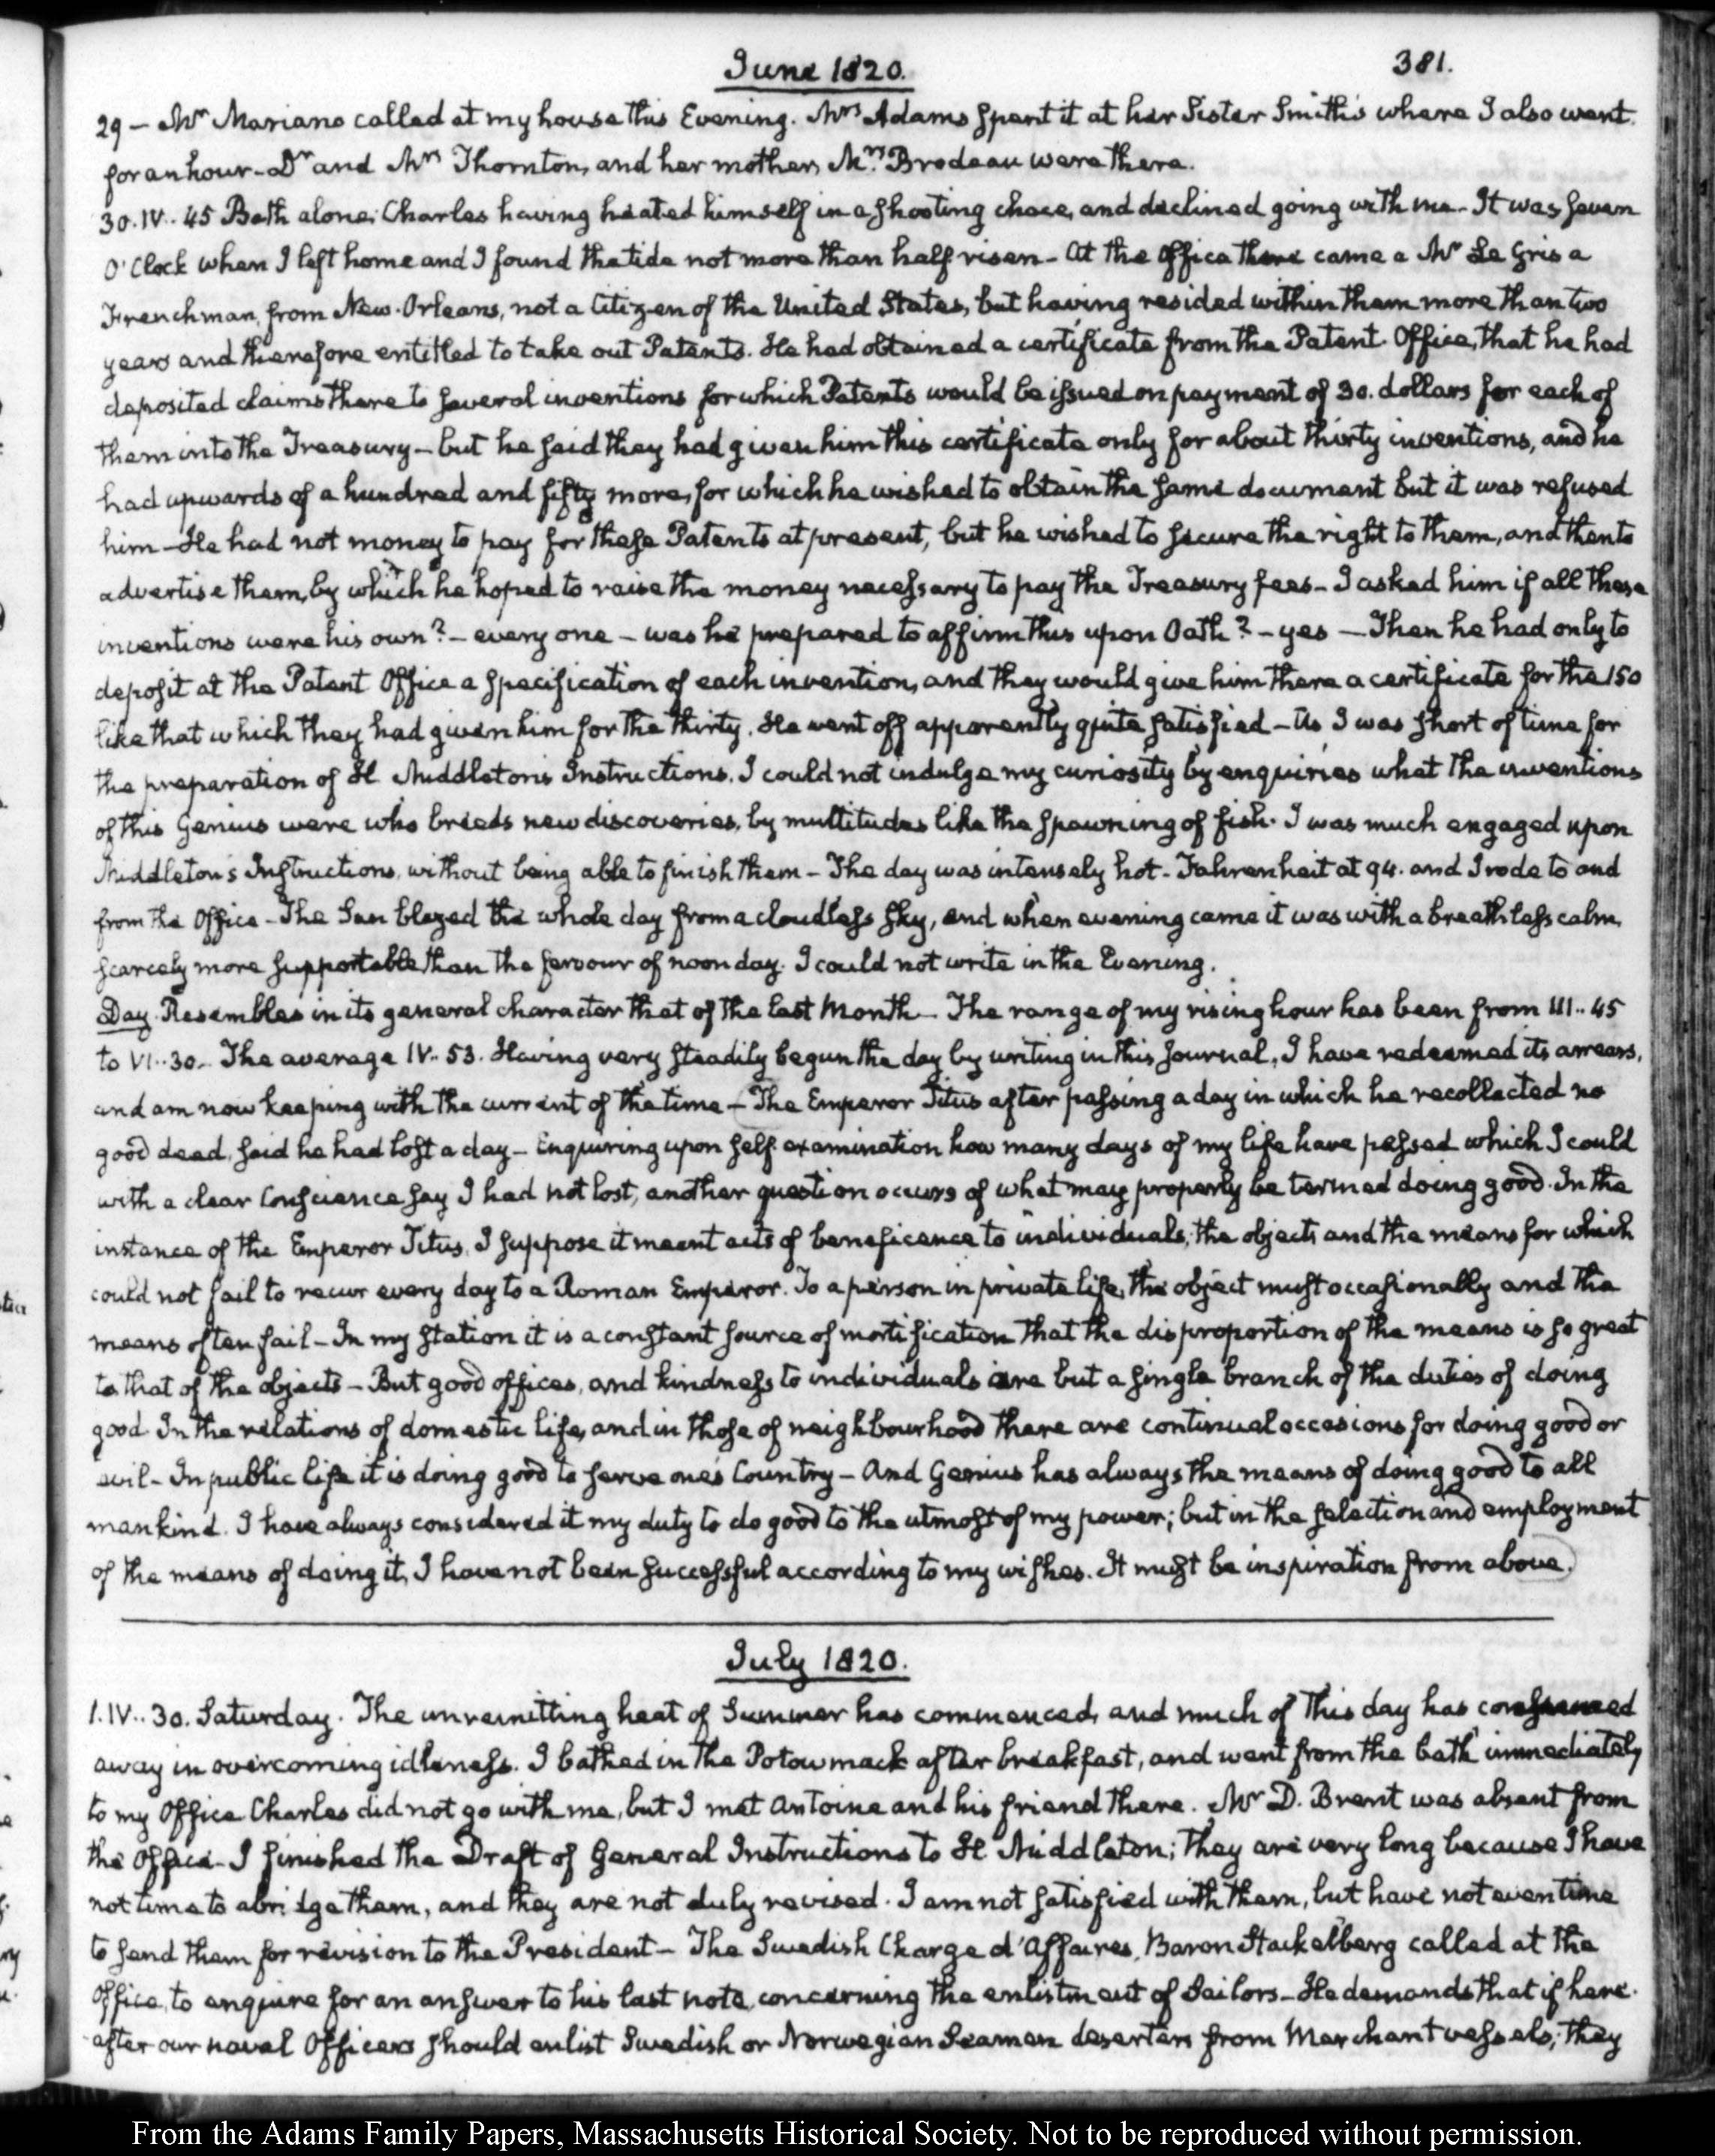 June 1820.
381.
29 – Mr Mariano called at my house this Evening. Mrs Adams spent it at her Sister Smith's where I also went
for an hour – Dr and Mrs Thornton, and her mother, Mrs Brodeau were there.
30. IV.. 45 Bath alone; Charles having heated himself in a shooting chace, and declined going with me – It was seven
O'Clock when I left home and I found the tide not more than half risen – At the Office there came a Mr Le Gris a
Frenchman, from New-Orleans, not a Citizen of the United States, but having resided within them more than two
years and therefore entitled to take out Patents. He had obtained a certificate from the Patent Office, that he had
deposited claims there to several inventions for which Patents would be issued on payment of 30. dollars for each of
them into the Treasury – but he said they had given him this certificate only for about thirty inventions, and he
had upwards of a hundred and fifty more, for which he wished to obtain the same document but it was refused
him – He had not money to pay for these Patents at present, but he wished to secure the right to them, and then to
advertise them, by which he hoped to raise the money necessary to pay the Treasury fees – I asked him if all these
inventions were his own? – every one – was he prepared to affirm this upon Oath? – yes – Then he had only to
deposit at the Patent Office a specification of each invention, and they would give him there a certificate for the 150
like that which they had given him for the thirty. He went off apparently quite satisfied – As I was short of time for
the preparation of H Middleton's Instructions, I could not indulge my curiosity by enquiries what the inventions
of this Genius were who breeds new discoveries, by multitudes like the spawning of fish. I was much engaged upon
Middleton's Instructions, without being able to finish them – The day was intensely hot – Fahrenheit at 94. and I rode to and
from the Office – The Sun blazed the whole day from a cloudless sky, and when evening came it was with a breathless calm,
scarcely more supportable than the fervour of noon day. I could not write in the Evening.
Day. Resembles in its general character that of the last Month – The range of my rising hour has been from III.. 45
to VI.. 30 – The average IV.. 53. Having very steadily begun the day by writing in this Journal, I have redeemed its arrears,
and am now keeping with the current of the time – The Emperor Titus after passing a day in which he recollected no
good deed, said he had lost a day – Enquiring upon self examination how many days of my life have passed which I could
with a clear Conscience say I had not lost, another question occurs of what may properly be termed doing good. In the
instance of the Emperor Titus, I suppose it meant acts of beneficence to individuals, the objects and the means for which
could not fail to recur every day to a Roman Emperor. To a person in private life, the object must occasionally and the
means often fail – In my station it is a constant source of mortification that the disproportion of the means is so great
to that of the objects – But good offices, and kindness to individuals are but a single branch of the duties of doing
good. In the relations of domestic life, and in those of neighbourhood there are continual occasions for doing good or
evil – In public life it is doing good to serve one's Country – And Genius has always the means of doing good to all
mankind. I have always considered it my duty to do good to the utmost of my power; but in the selection and employment
of the means of doing it, I have not been successful according to my wishes. It must be inspiration from above.
July 1820.
1. IV.. 30. Saturday. The unremitting heat of Summer has commenced, and much of this day has consumed
away in overcoming idleness. I bathed in the Potowmack after breakfast, and went from the bath immediately
to my Office Charles did not go with me, but I met Antoine and his friend there. Mr D. Brent was absent from
the Office – I finished the Draft of General Instructions to H Middleton; they are very long because I have
not time to abridge them, and they are not duly revised. I am not satisfied with them, but have not even time
to send them for revision to the President – The Swedish Charge d'Affaires, Baron Stackelberg called at the
Office, to enquire for an answer to his last note concerning the enlistment of Sailors – He demands that if here-
after our naval Officers should enlist Swedish or Norwegian Seamen deserters from Merchant vessels, they
From the Adams Family Papers, Massachusetts Historical Society. Not to be reproduced without permission.